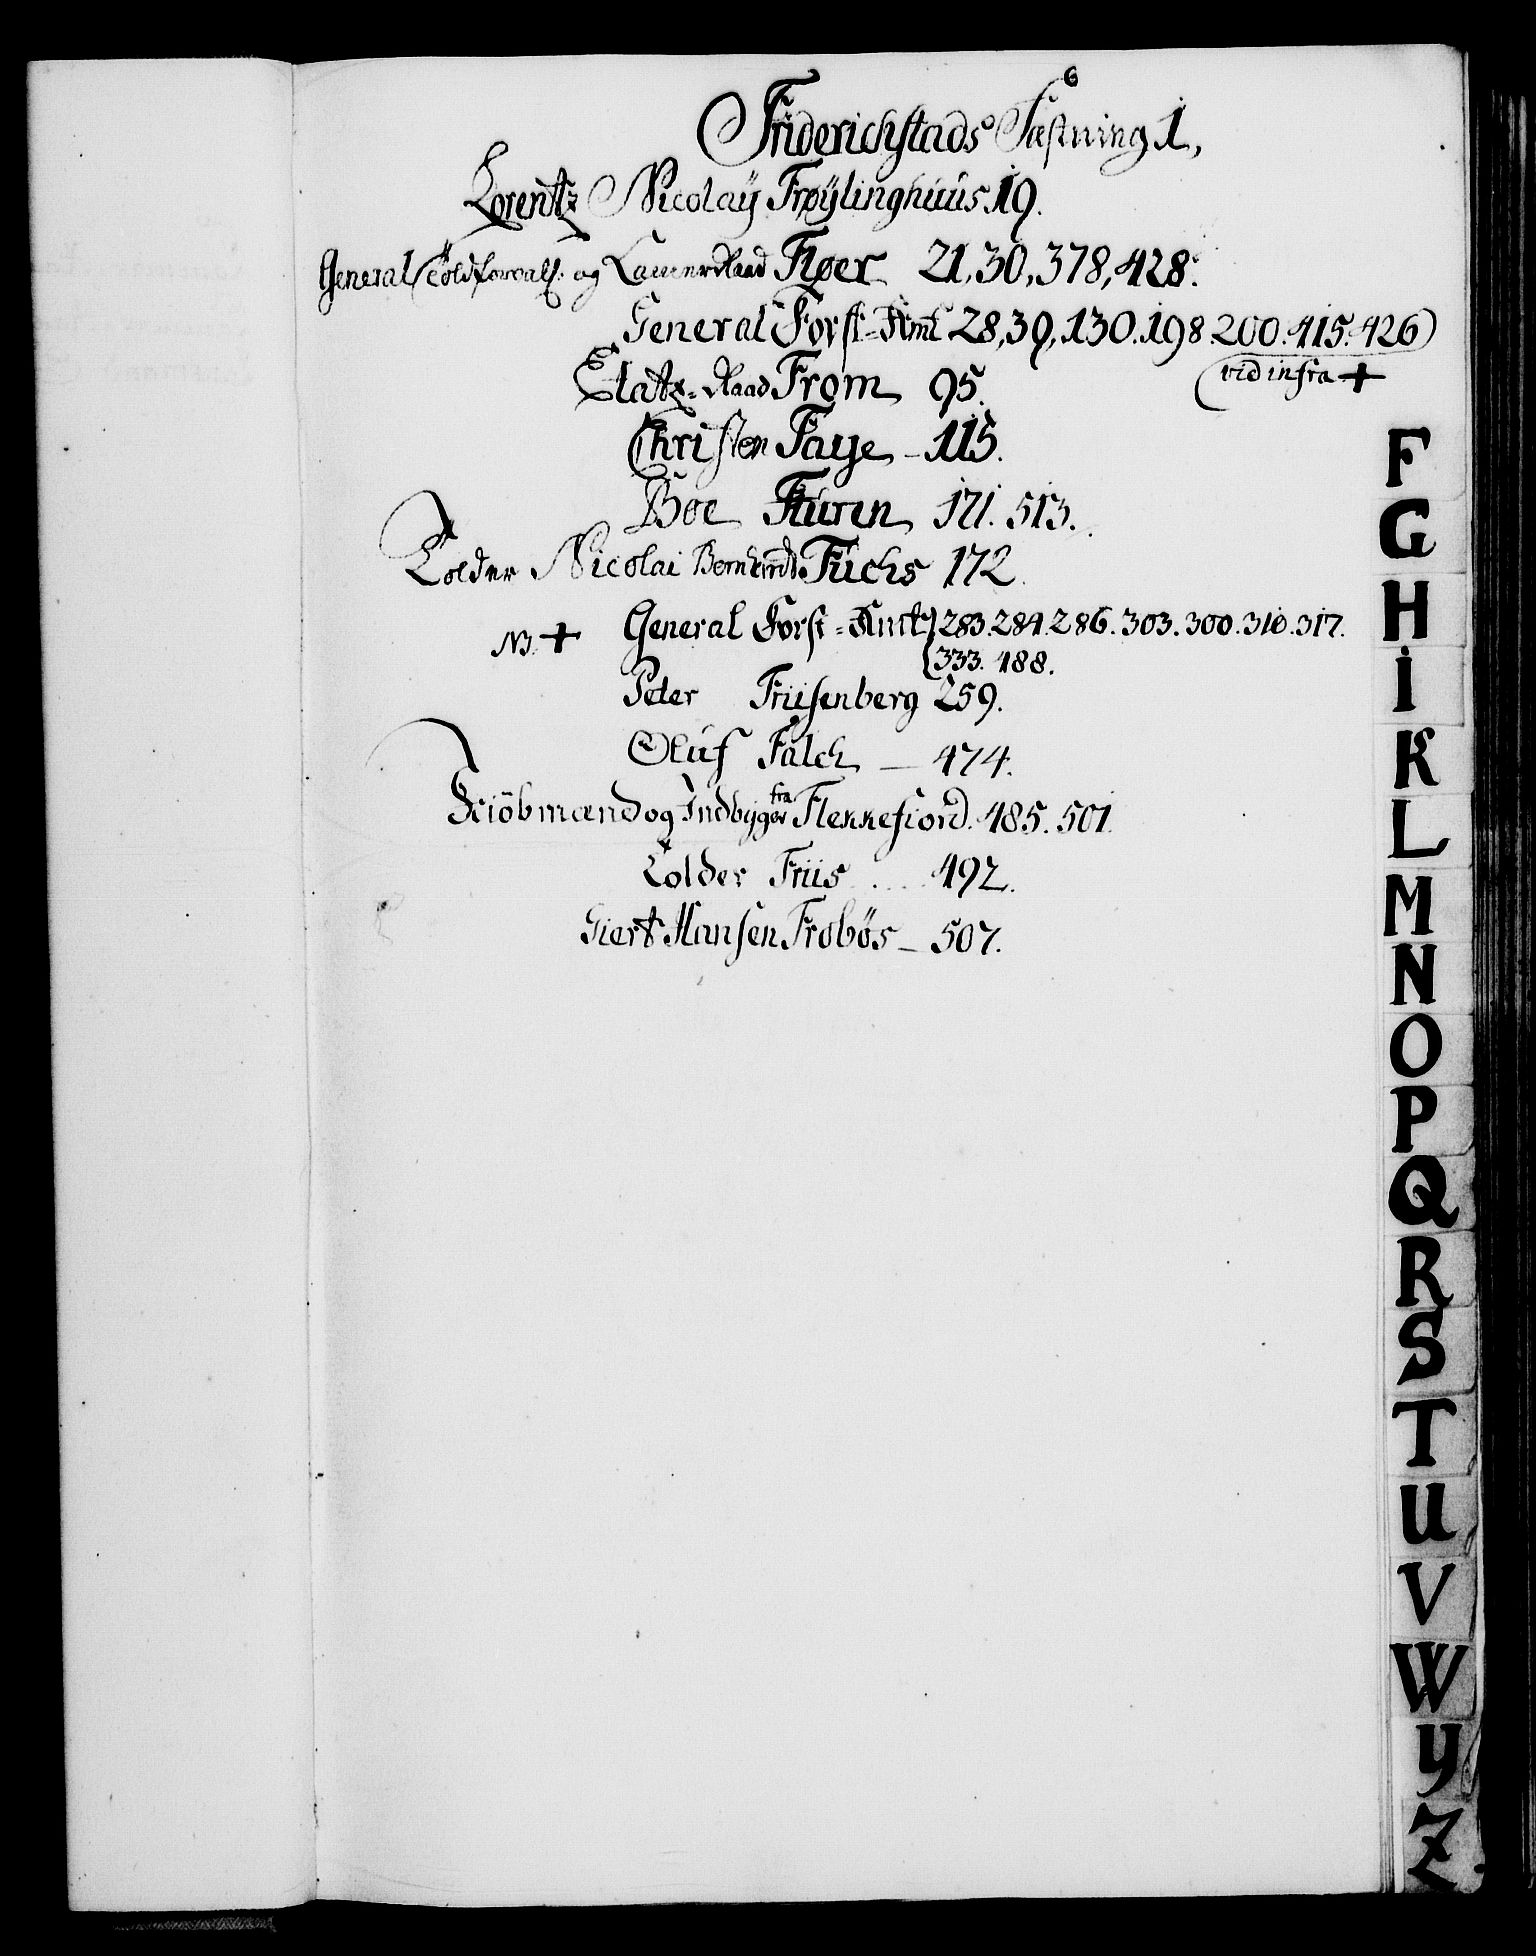 6
Friderichstads Fæstning 1,
Lorentz Nicolaÿ Frøÿlinghuus 19.
General Toldforvalt: og Camerraad Fløer 21, 30, 378, 428.
General Forst-Amt 28, 39, 130. 198. 200. 415. 426
vid infra +
Etatz-Raad From 95.
Christen Faÿe - 115.
Boe Furen 171. 513.
Tolder Nicolai Bernhard Fuchs 172.
NB. + General Forst-Amt 283. 284. 286. 303. 300. 310. 317.
333. 488.
Peter Friisenberg 259.
Oluf Falch - 474.
Kiöbmænd og Indbyger fra Flekkefiord. 485. 501.
Tolder Friis .... 492.
Giert Hansen Frobös - 507.
F
G
H
I
K
L
M
N
O
P
Q
R
S
T
U
V
W
Y
Z